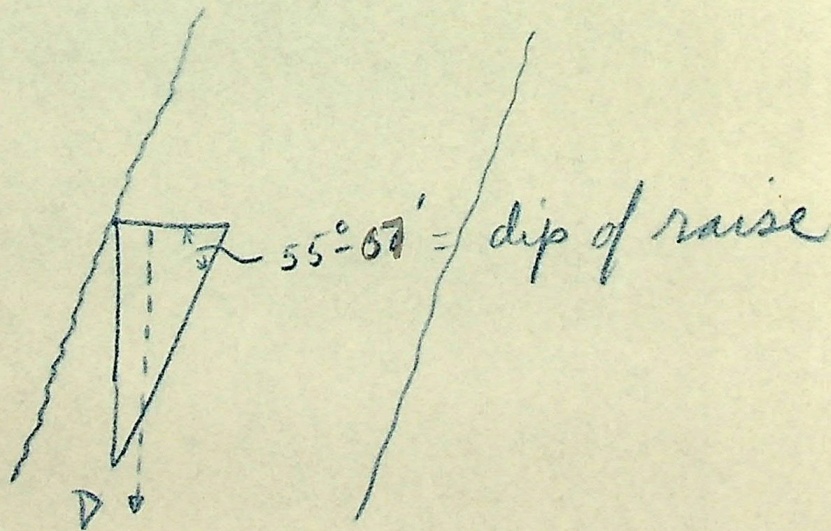 55°-07' = dip of raise
D